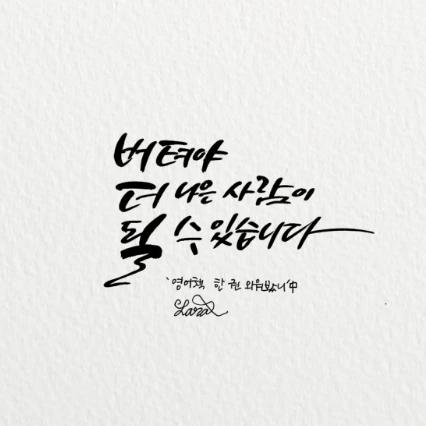 버텨야
더 나은 사람이
될 수 있습니다
'영어책 한 권 외워봤니'中
Lara